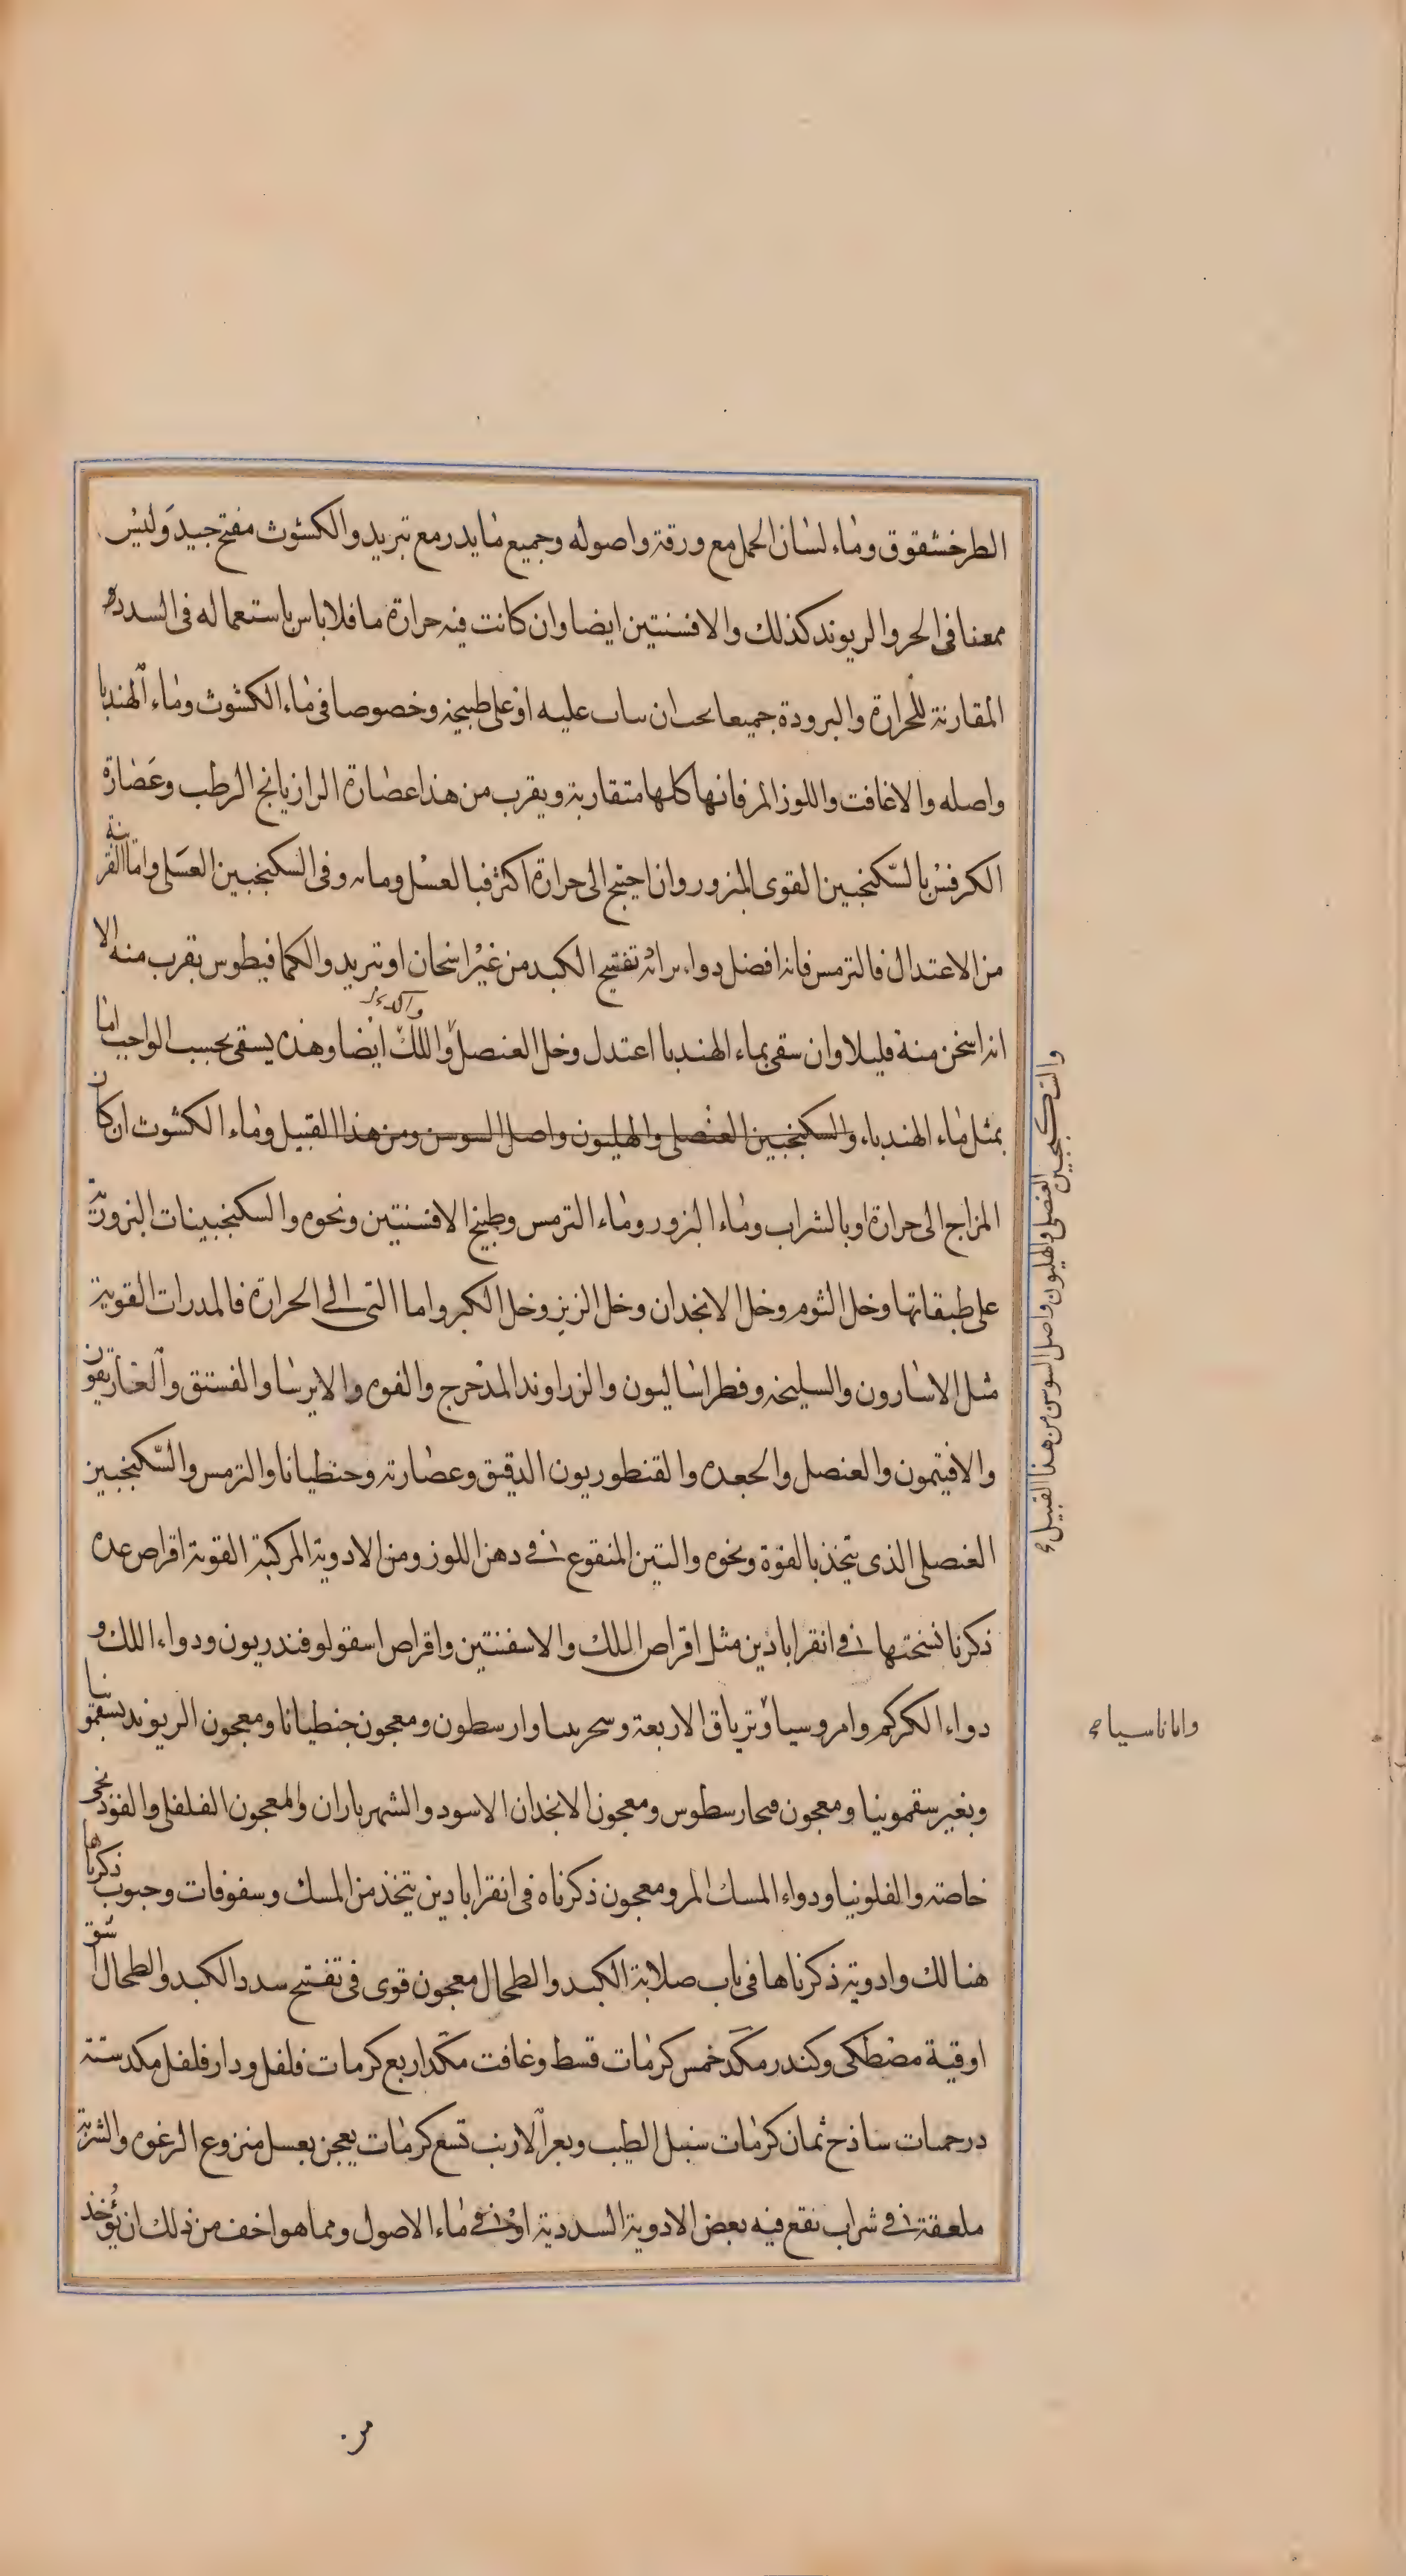 الطرخشقوق وماء لسان الحمل مع ورقة واصوله وجميع ما يدر مع تبريد والكشوث مفتح جيد وليس
ممعنا في الحر والريوند كذلك والافسنتين ايضا وان كانت فيه حرارة ما فلا باس باستعماله في السدد
المقارنة للحرارة والبرودة جميعا يجب ان يداب عليه او على طبيخه وخصوصا في ماء الكشوث وماء الهندبا
واصله والاغافت واللوز المر فانها كلها متقاربة ويقرب من هذا عصارة الرازيانج الرطب وعصارة
الكرفس بالسكنجبين القوى البزور وان احتيج الى حرارة اكثر فبالعسل ومائه وفى السكنجبين العسلى واما القريبة
من الاعتدال فالترمس فانه افضل دواء يراد به تفتيح الكبد من غير اسخان او تبريد والكمافيطوس يقرب منه الا
انه اسخن منه قليلا وان سقى بماء الهندبا اعتدل وخل العنصل واللك ايضا وهذه يسقى بحسب الواجب اما
بمثل ماء الهندباء والسكنجبين العنصلى والهليون واصل السوسن ومن هذا القبيل وماء الكشوث ان كان
المزاج الى حرارة او بالشراب وماء البزور وماء الترمس وطبيخ الافسنتين ونحوه والسكنجبينات البزورية
على طبقاتها وخل الثوم وخل الانجدان وخل الزيز وخل الكبر واما التى الى الحرارة فالمدرات القوية
مثل الاسارون والسليخه وفطراساليون والزراوند المدحرج والفوه والايرسا والفستق والغاريقون
والافتيمون والعنصل والجعده والقنطوريون الدقيق وعصارته وجنطيانا والترمس والسكنجبين
العنصلى الذى يتخذ بالفوة ونحوه والتين المنقوع فى دهن اللوز ومن الادوية المركبة القوية اقراص عده
ذكرنا نسختها فى انقراباذين مثل اقراص اللك والاسفنتين واقراص اسقولوفندريون ودواء اللك و
دواء الكركم وامروسيا وترياق الاربعة وسحرينا وارسطون ومعجون جنطيانا ومعجون الريوند بسقمونيا
وبغير سقمونيا ومعجون فيحارسطوس ومعجون الانجدان الاسود والشهرياران والمعجون الفلفلى والفوذنجى
خاصته والفلونيا ودواء المسك المر ومعجون ذكرناه فى انقراباذين يتخذ من المسك وسفوفات وحبوب ذكرناها
هنالك وادوية ذكرناها فى باب صلابة الكبد والطحال معجون قوى فى تفتيح سدد الكبد والطحال اشق
اوقية مصطكى وكندر مكد خمس كرمات قسط وغافت مكد اربع كرمات فلفل ودار فلفل مكد ستة
درخميات ساذج ثمان كرمات سنبل الطيب وبعر الارنب تسع كرمات يعجن بعسل منزوع الرغوه والشربة
ملعقة فى شراب نقع فيه بعض الادوية السددية او فى ماء الاصول ومما هو اخف من ذلك ان يؤخذ
والسكنجبين العنصلى والهليون واصل السوسن من هذا القبيل
واماناسيا